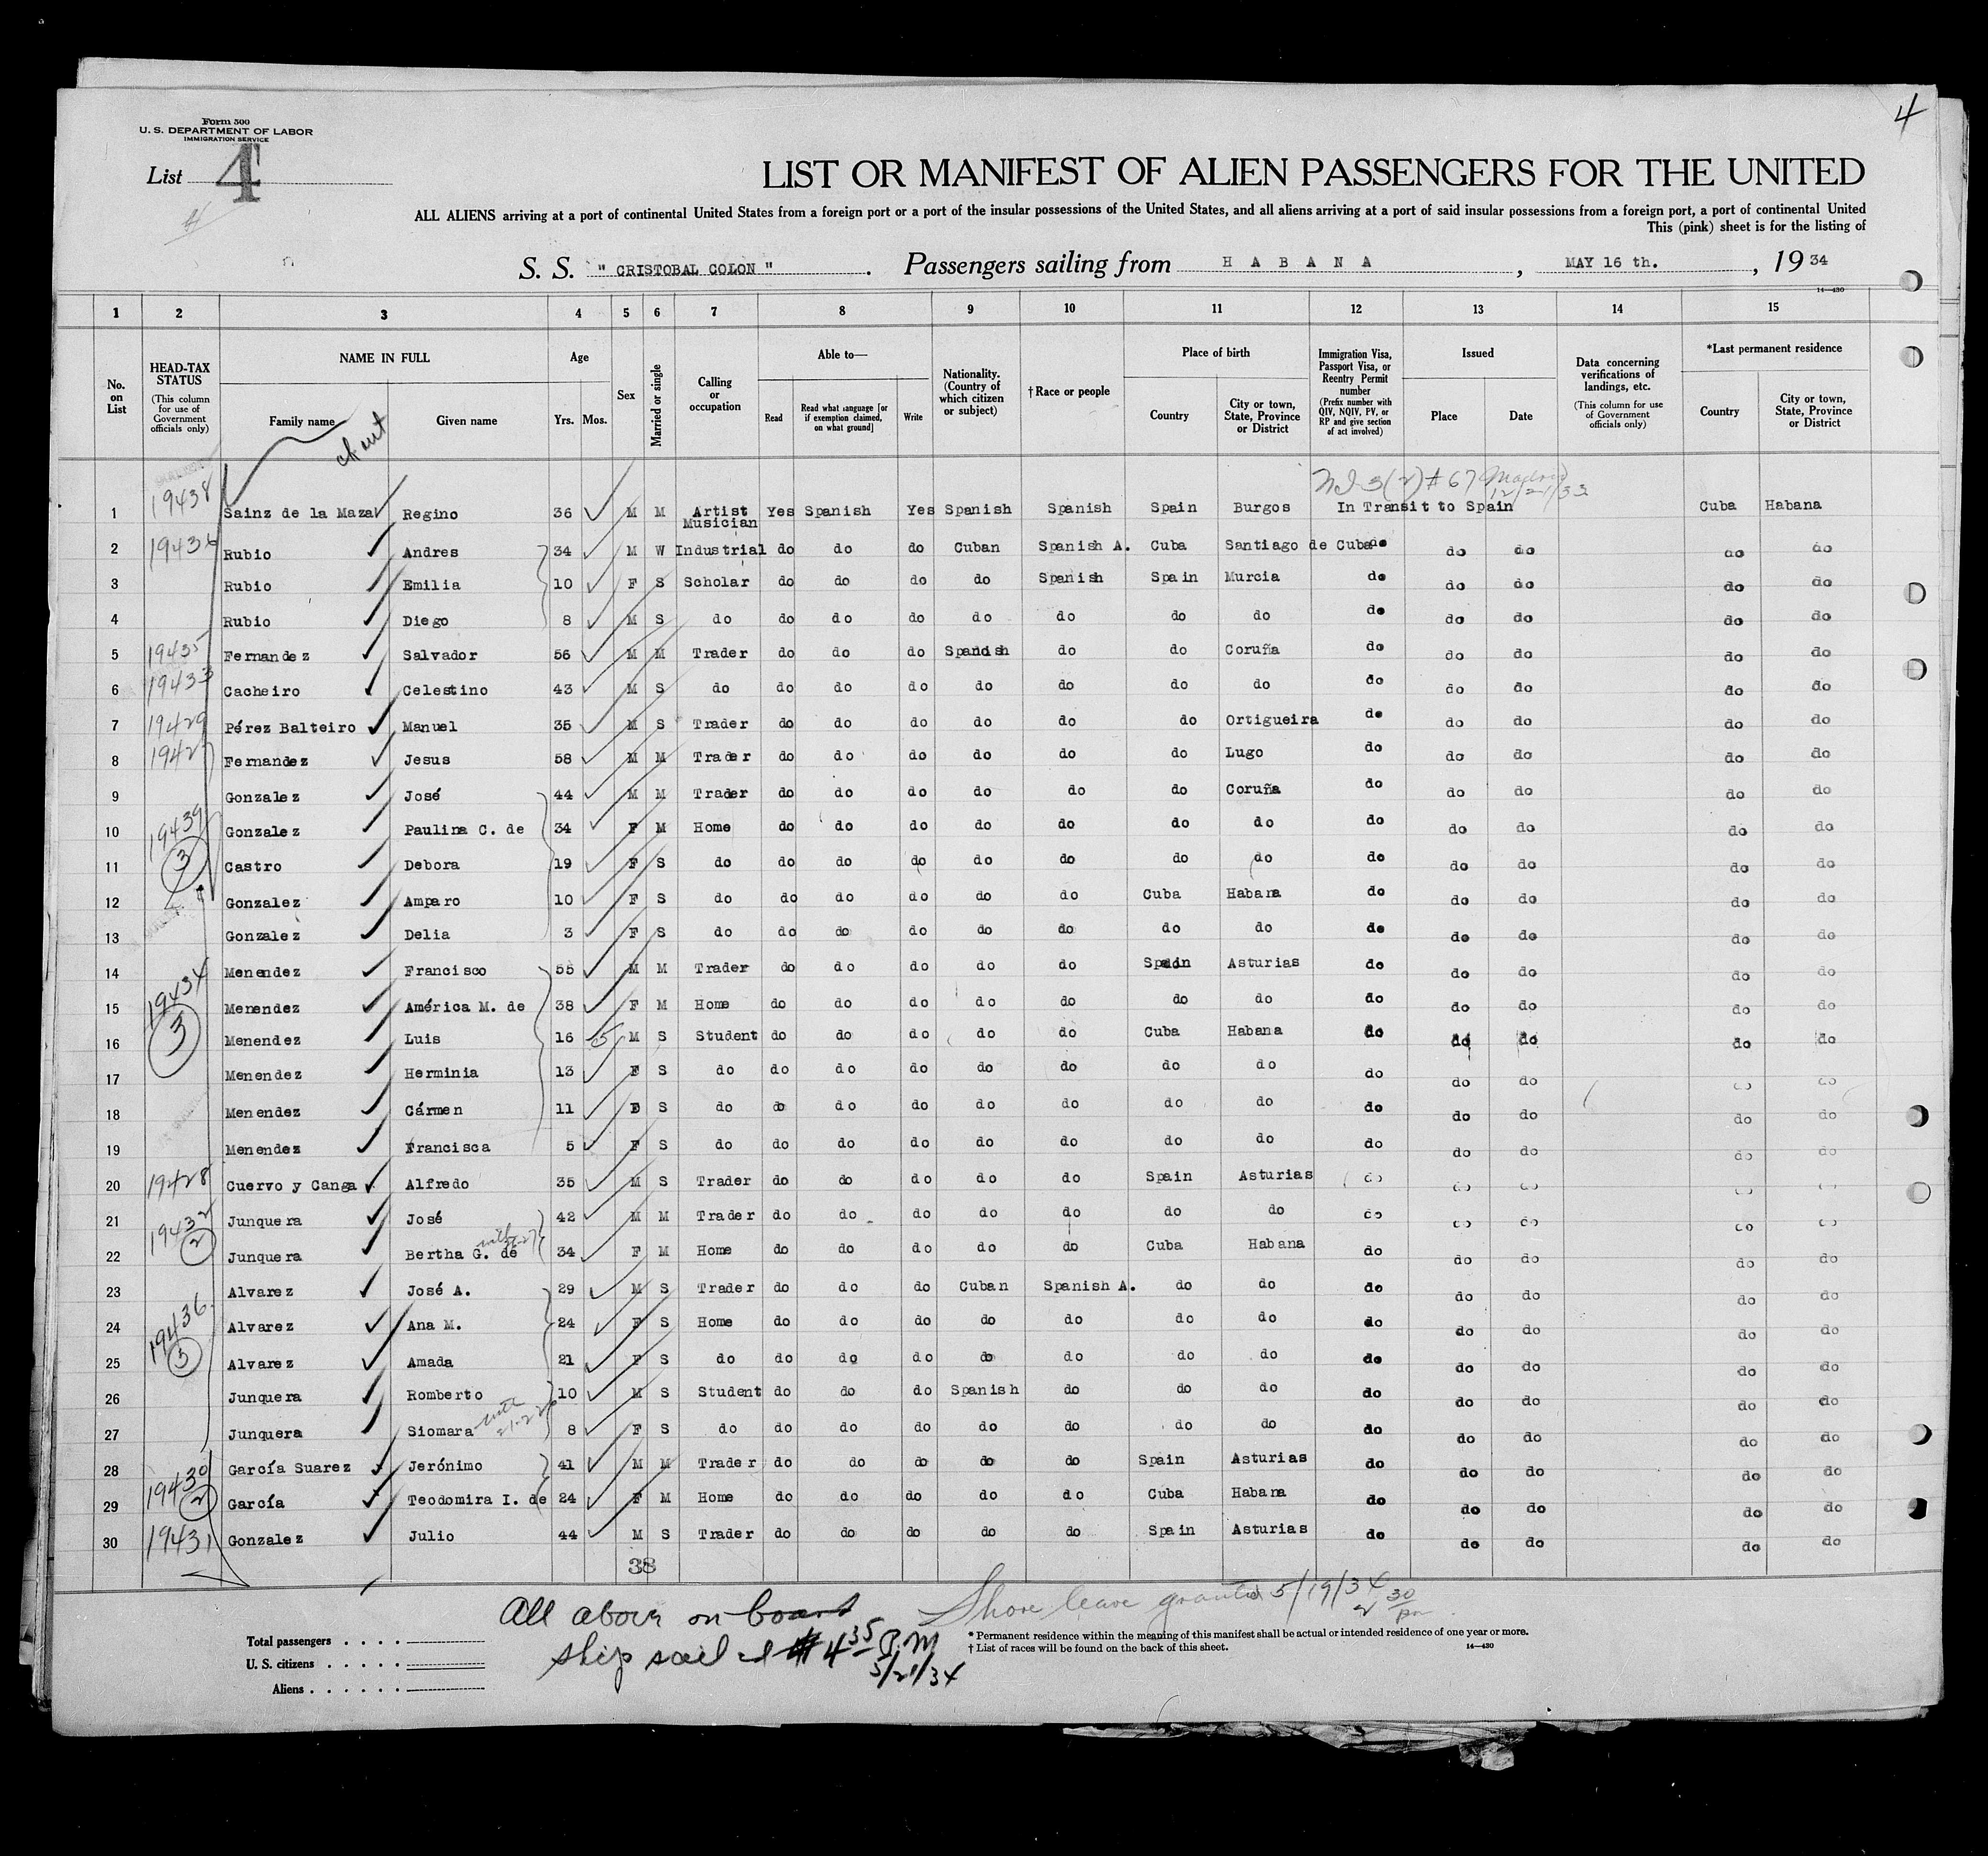 4
Form 500
U. S. DEPARTMENT OF LABOR
IMMIGRATION SERVICE
List 4
LIST OR MANIFEST OF ALIEN PASSENGERS FOR THE UNITED
ALL ALIENS arriving at a port of continental United States from a foreign port or a port of the insular possessions of the United States, and all aliens arriving at a port of said insular possessions from a foreign port, a port of continental United
This (pink) sheet is for the listing of
S. S. " CRISTOBAL COLON " . Passengers sailing from H A B A N A , MAY 16 th. , 19 34
14—430
1 2 3 4 5 6 7 8 9 10 11 12 13 14 15
No. on List
HEAD-TAX STATUS (This column for use of Government officials only)
NAME IN FULL Family name Given name
Age Yrs. Mos.
Sex
Married or single
Calling or occupation
Able to— Read Read what language [or if exemption claimed, on what ground] Write
Nationality. (Country of which citizen or subject)
† Race or people
Place of birth Country City or town, State, Province or District
Immigration Visa, Passport Visa, or Reentry Permit number (Prefix number with QIV, NQIV, PV, or RP and give section of act involved)
Issued Place Date
Data concerning verifications of landings, etc. (This column for use of Government officials only)
*Last permanent residence Country City or town, State, Province or District
3(2) #67 Madrid
12/21/33
1 19438 Sainz de la Maza Regino 36 M M Artist Musician Yes Spanish Yes Spanish Spanish Spain Burgos In Transit to Spain Cuba Habana
2 19436 Rubio Andres 34 M W Industrial do do do Cuban Spanish A. Cuba Santiago de Cuba do do do do do
3 Rubio Emilia 10 F S Scholar do do do do Spanish Spain Murcia do do do do do
4 Rubio Diego 8 M S do do do do do do do do do do do do do
5 19435 Fernandez Salvador 56 M M Trader do do do Spanish do do Coruña do do do do do
6 19433 Cacheiro Celestino 43 M S do do do do do do do do do do do do do
7 19429 Pérez Balteiro Manuel 35 M S Trader do do do do do do Ortigueira do do do do do
8 19427 Fernandez Jesus 58 M M Trader do do do do do do Lugo do do do do do
9 Gonzalez José 44 M M Trader do do do do do do Coruña do do do do do
10 19439 Gonzalez Paulina C. de 34 F M Home do do do do do do do do do do do do
11 3 Castro Debora 19 F S do do do do do do do do do do do do do
12 Gonzalez Amparo 10 F S do do do do do do Cuba Habana do do do do do
13 Gonzalez Delia 3 F S do do do do do do do do do do do do do
14 Menendez Francisco 55 M M Trader do do do do do Spain Asturias do do do do do
15 19434 Menendez América M. de 38 F M Home do do do do do do do do do do do do
16 3 Menendez Luis 16 5 M S Student do do do do do Cuba Habana do do do do do
17 Menendez Herminia 13 F S do do do do do do do do do do do do do
18 Menendez Cármen 11 F S do do do do do do do do do do do do do
19 Menendez Francisca 5 F S do do do do do do do do do do do do do
20 19428 Cuervo y Canga Alfredo 35 M S Trader do do do do do Spain Asturias do do do do do
21 19432 Junquera José 42 M M Trader do do do do do do do do do do do do
22 2 Junquera Bertha G. de with 26-27 34 F M Home do do do do do Cuba Habana do do do do do
23 Alvarez José A. 29 M S Trader do do do Cuban Spanish A. do do do do do do do
24 19436 Alvarez Ana M. 24 F S Home do do do do do do do do do do do do
25 3 Alvarez Amada 21 F S do do do do do do do do do do do do do
26 Junquera Romberto 10 M S Student do do do Spanish do do do do do do do do
27 Junquera Siomara with 21-22 8 F S do do do do do do do do do do do do do
28 García Suarez Jerónimo 41 M M Trader do do do do do Spain Asturias do do do do do
29 19430 2 García Teodomira I. de 24 F M Home do do do do do Cuba Habana do do do do do
30 19431 Gonzalez Julio 44 M S Trader do do do do do Spain Asturias do do do do do
38
All above on board
ship sailed 4 35 P.M
5/21/34
Shore leave granted 5/19/34
2 30 pm
Total passengers . . . .
U. S. citizens . . . . .
Aliens . . . . . .
* Permanent residence within the meaning of this manifest shall be actual or intended residence of one year or more.
† List of races will be found on the back of this sheet.
14—430